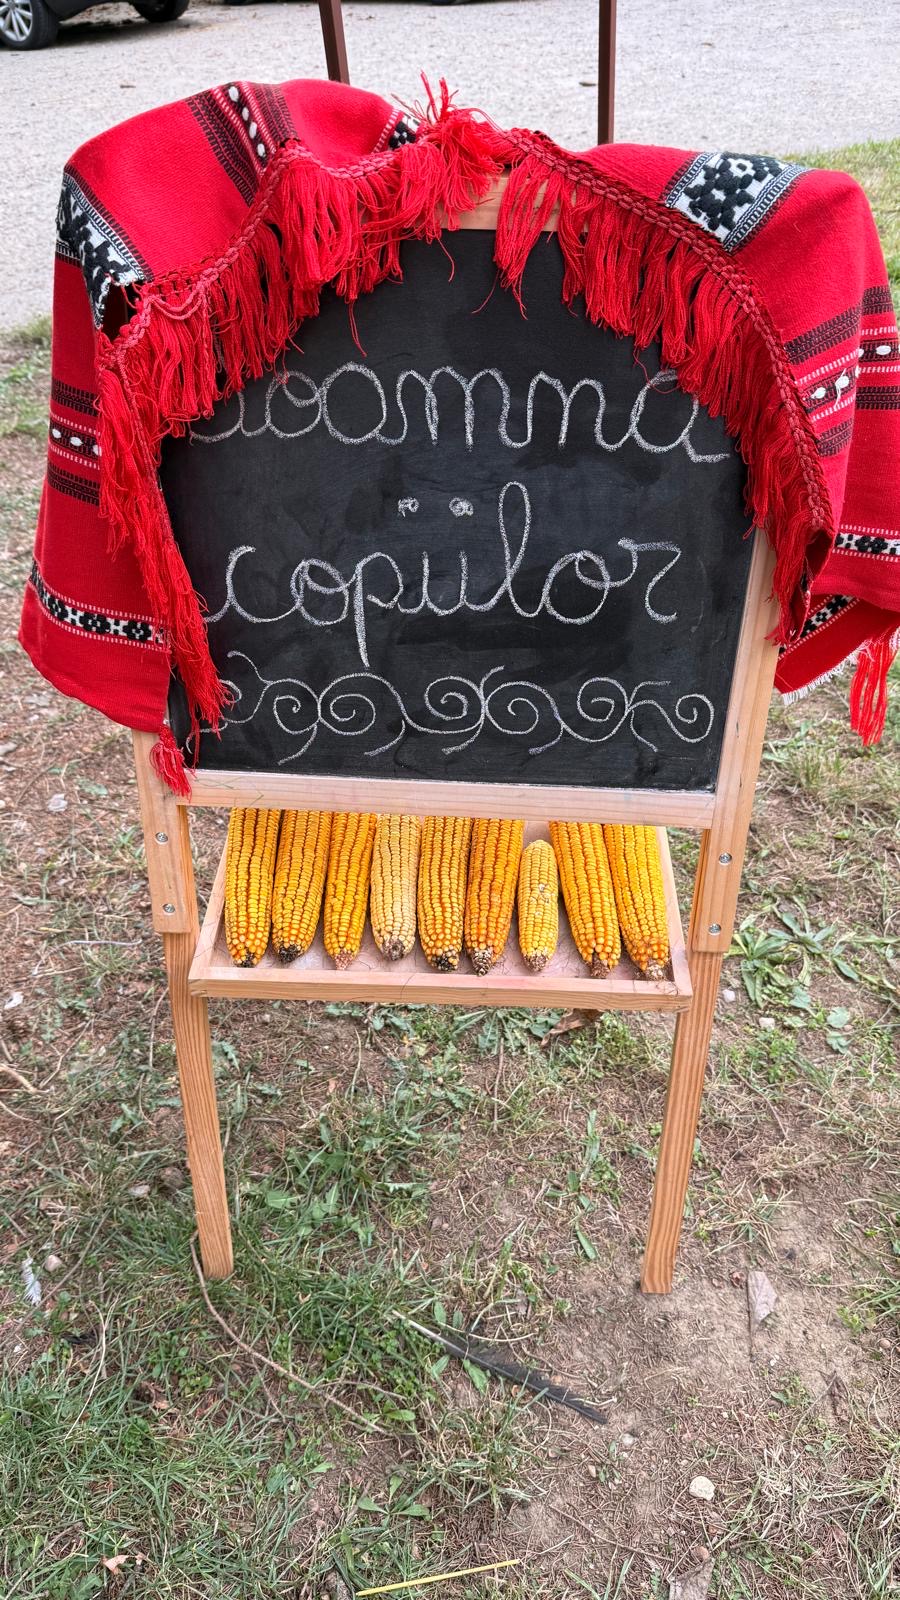 Toamna
copiilor